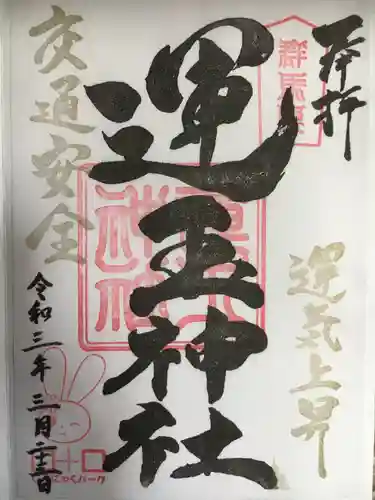 奉拝
群馬県
運気上昇
運玉神社
交通安全
令和三年三月二十三日